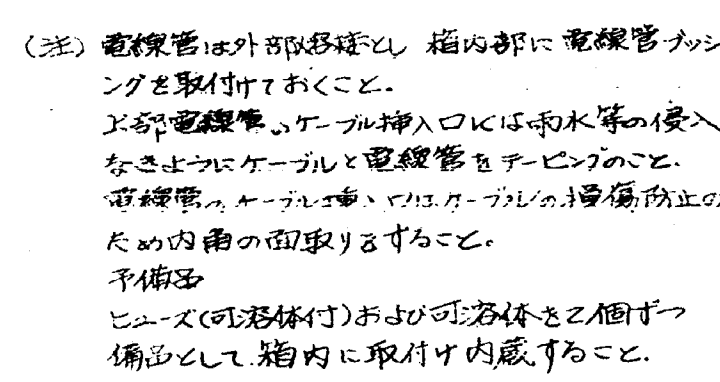 (注) 電線管は外部溶接とし 箱内部に電線管ブッシ
ングを取付けておくこと.
上部電線管のケーブル挿入口には雨水等の侵入
なきようにケーブルと電線管をテーピングのこと.
電線管のケーブル挿入口はケーブルの損傷防止の
ため内角の面取りをすること。
予備品
ヒューズ(可溶体付)および可溶体を2個ずつ
備品として.箱内に取付け内蔵すること.